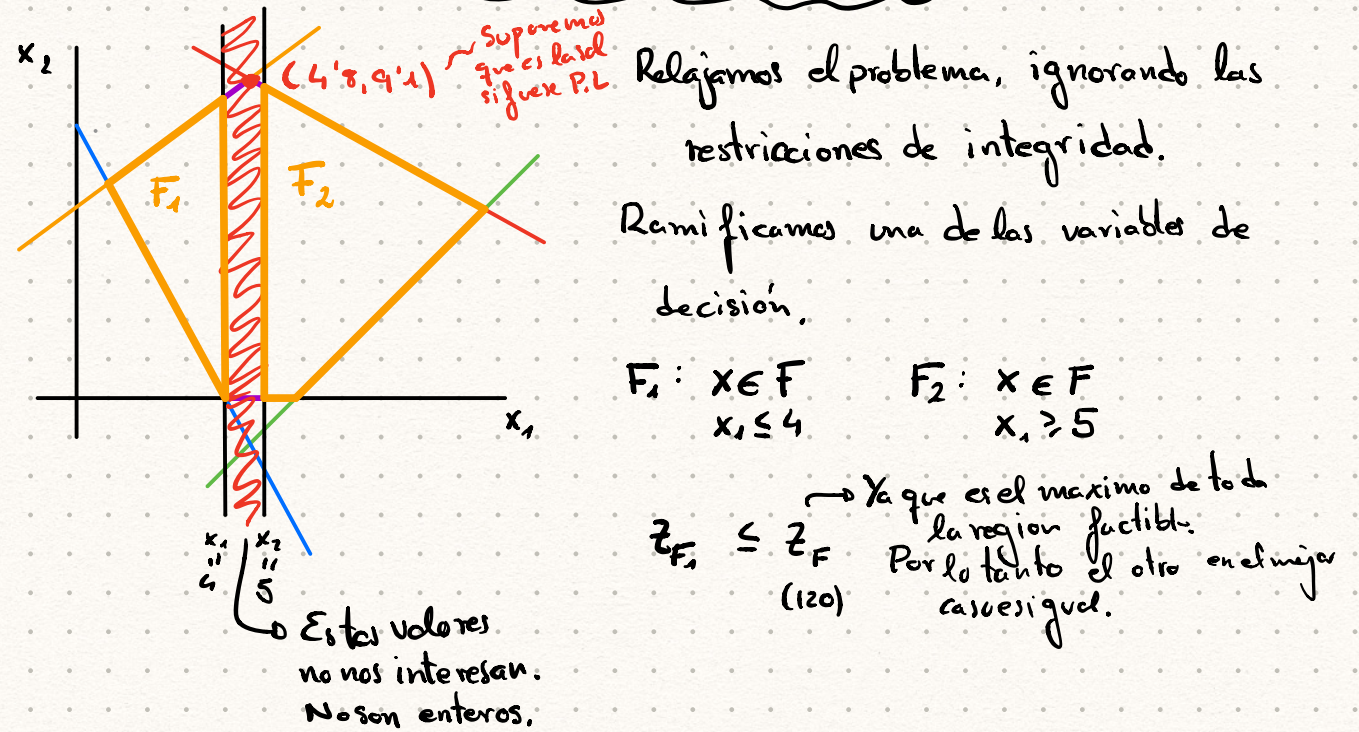 x₂
(4'8, 9'1)
Suponemos
que es la sol
si fuese P.L
F₁
F₂
x₁
x₁ x₂
" "
4 5
Estos valores
no nos interesan.
No son enteros.
Relajamos el problema, ignorando las
restricciones de integridad.
Ramificamos una de las variables de
decisión.
F₁: x ∈ F F₂: x ∈ F
x₁ ≤ 4 x₁ ≥ 5
Z_F₁ ≤ Z_F
(120)
Ya que es el maximo de toda
la region factible.
Por lo tanto el otro en el mejor
caso es igual.